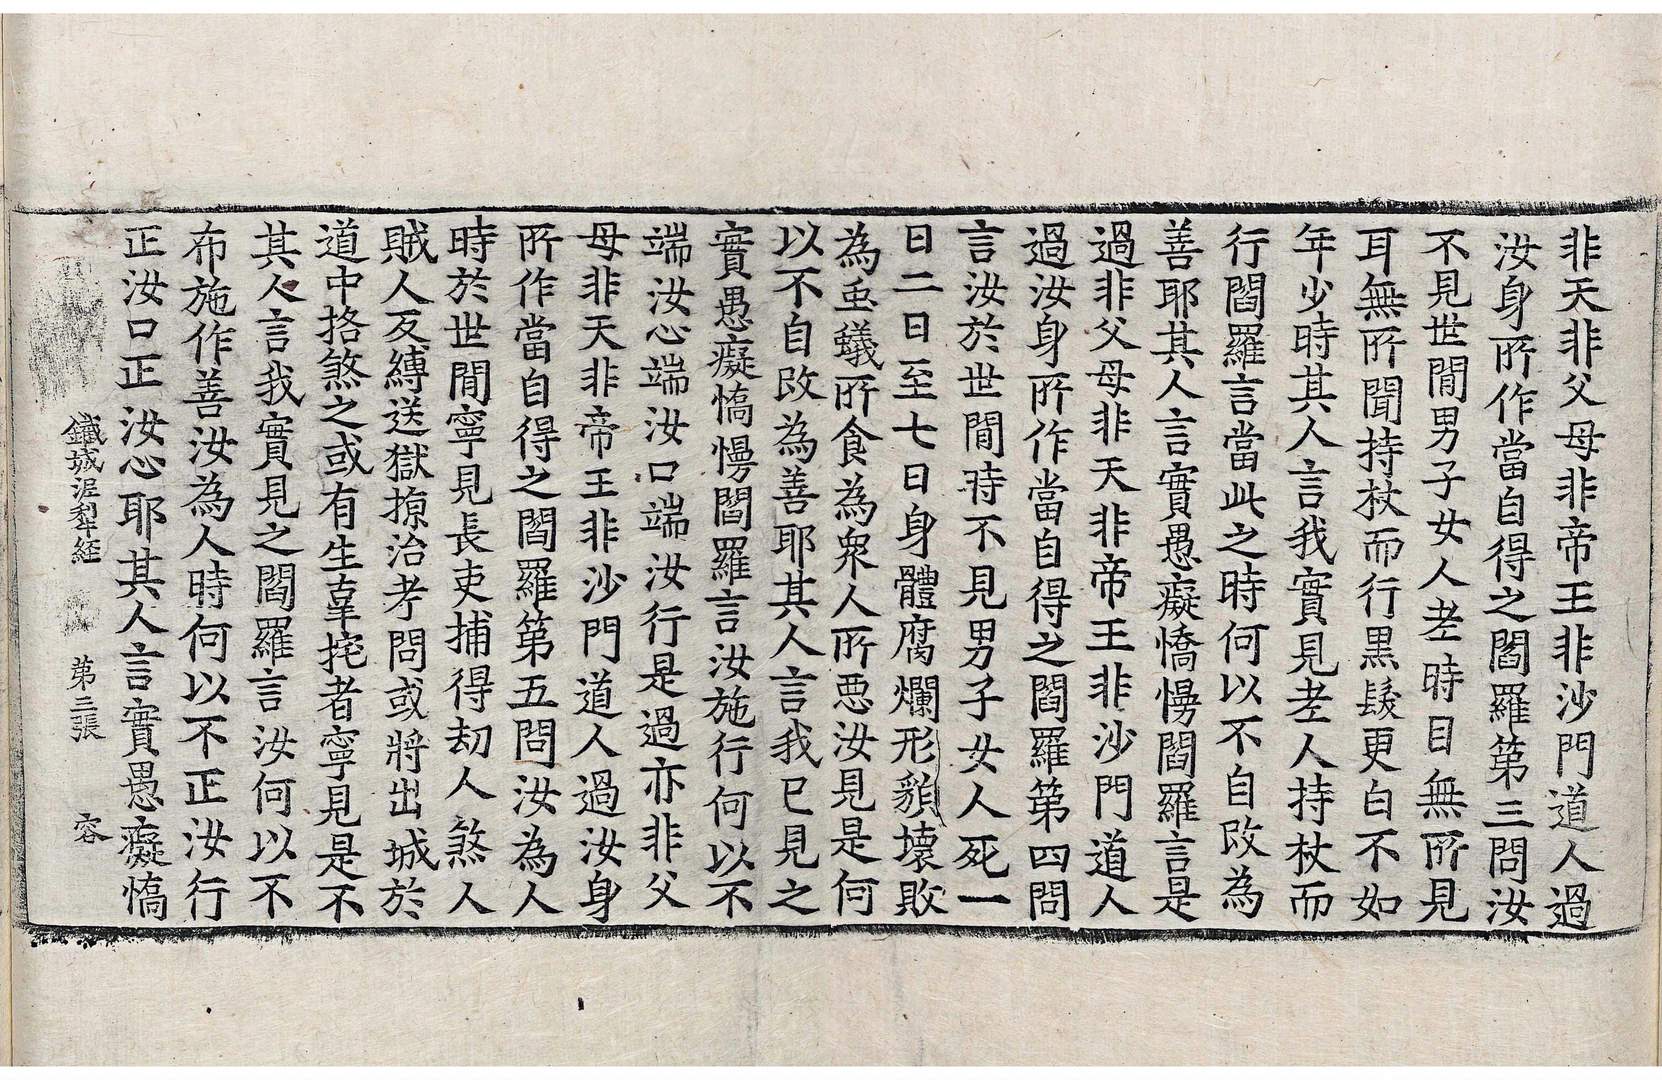 非天非父母非帝王非沙門道人過
汝身所作當自得之閻羅第三問汝
不見世間男子女人老時目無所見
耳無所聞持杖而行黑髮更白不如
年少時其人言我實見老人持杖而
行閻羅言當此之時何以不自改為
善耶其人言實愚癡憍慢閻羅言是
過非父母非天非帝王非沙門道人
過汝身所作當自得之閻羅第四問
言汝於世間時不見男子女人死一
日二日至七日身體腐爛形貌壞敗
為虫蟻所食為衆人所惡汝見是何
以不自改為善耶其人言我已見之
實愚癡憍慢閻羅言汝施行何以不
端汝心端汝口端汝行是過亦非父
母非天非帝王非沙門道人過汝身
所作當自得之閻羅第五問汝為人
時於世間寧見長吏捕得劫人煞人
賊人反縛送獄掠治考問或將出城於
道中挌煞之或有生辜挓者寧見是不
其人言我實見之閻羅言汝何以不
布施作善汝為人時何以不正汝行
正汝口正汝心耶其人言實愚癡憍
鐵城泥犁経 第三張 容